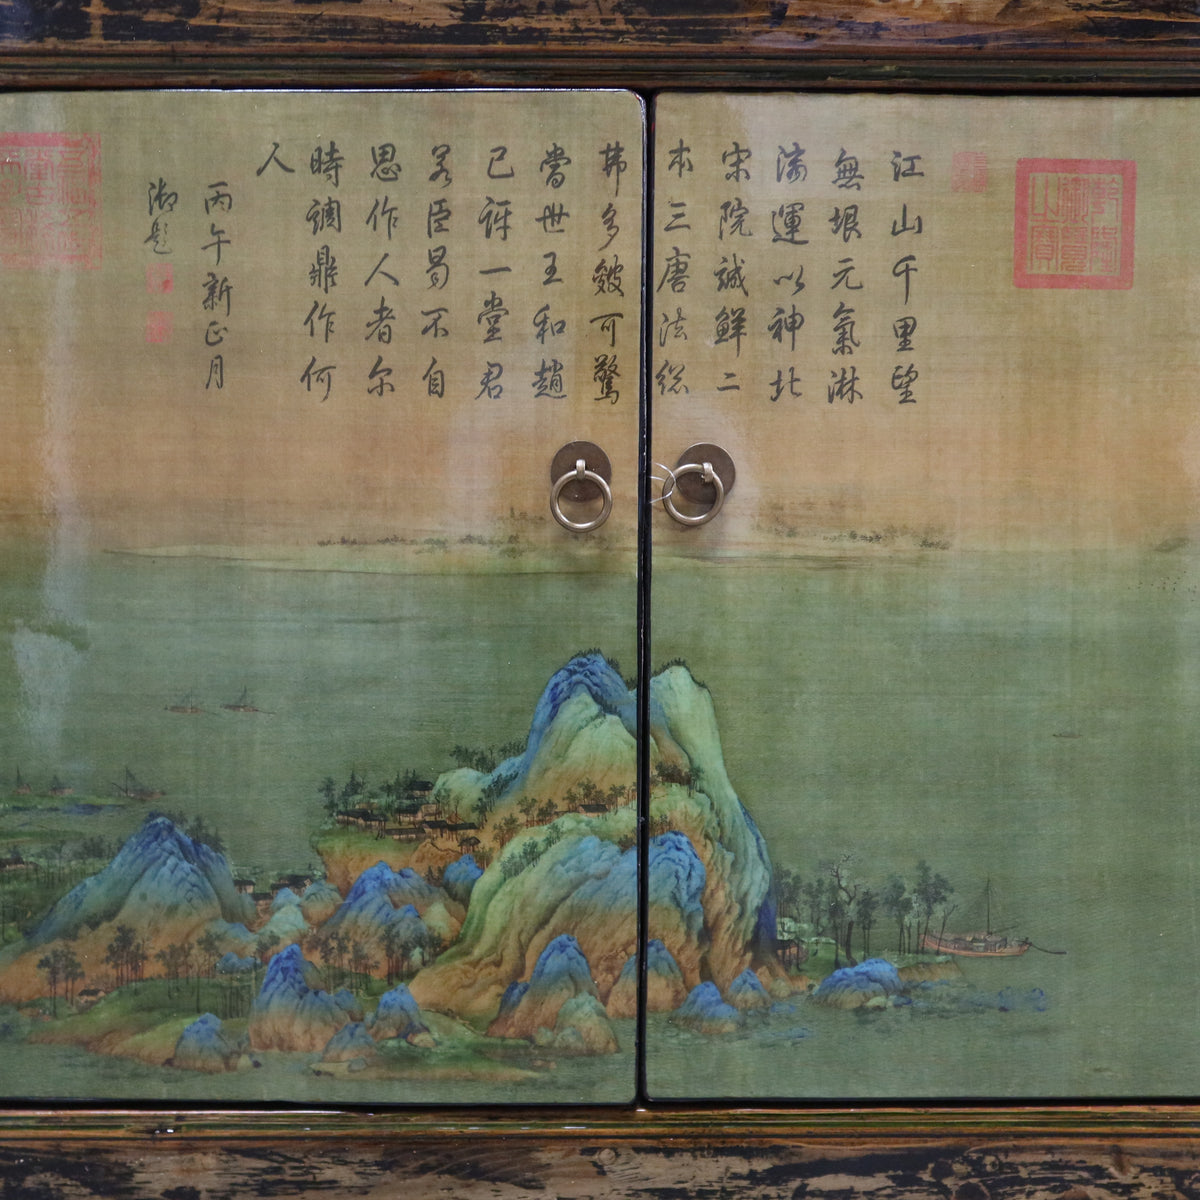 江山千里望
無垠元氣淋
漓運以神北
宋院誠鮮二
本三唐法總
弗多皴可驚
當世王和趙
已訝一堂君
若臣曷不自
思作人者尔
時調鼎作何
人
丙午新正月
御題
乾隆御覽之寶